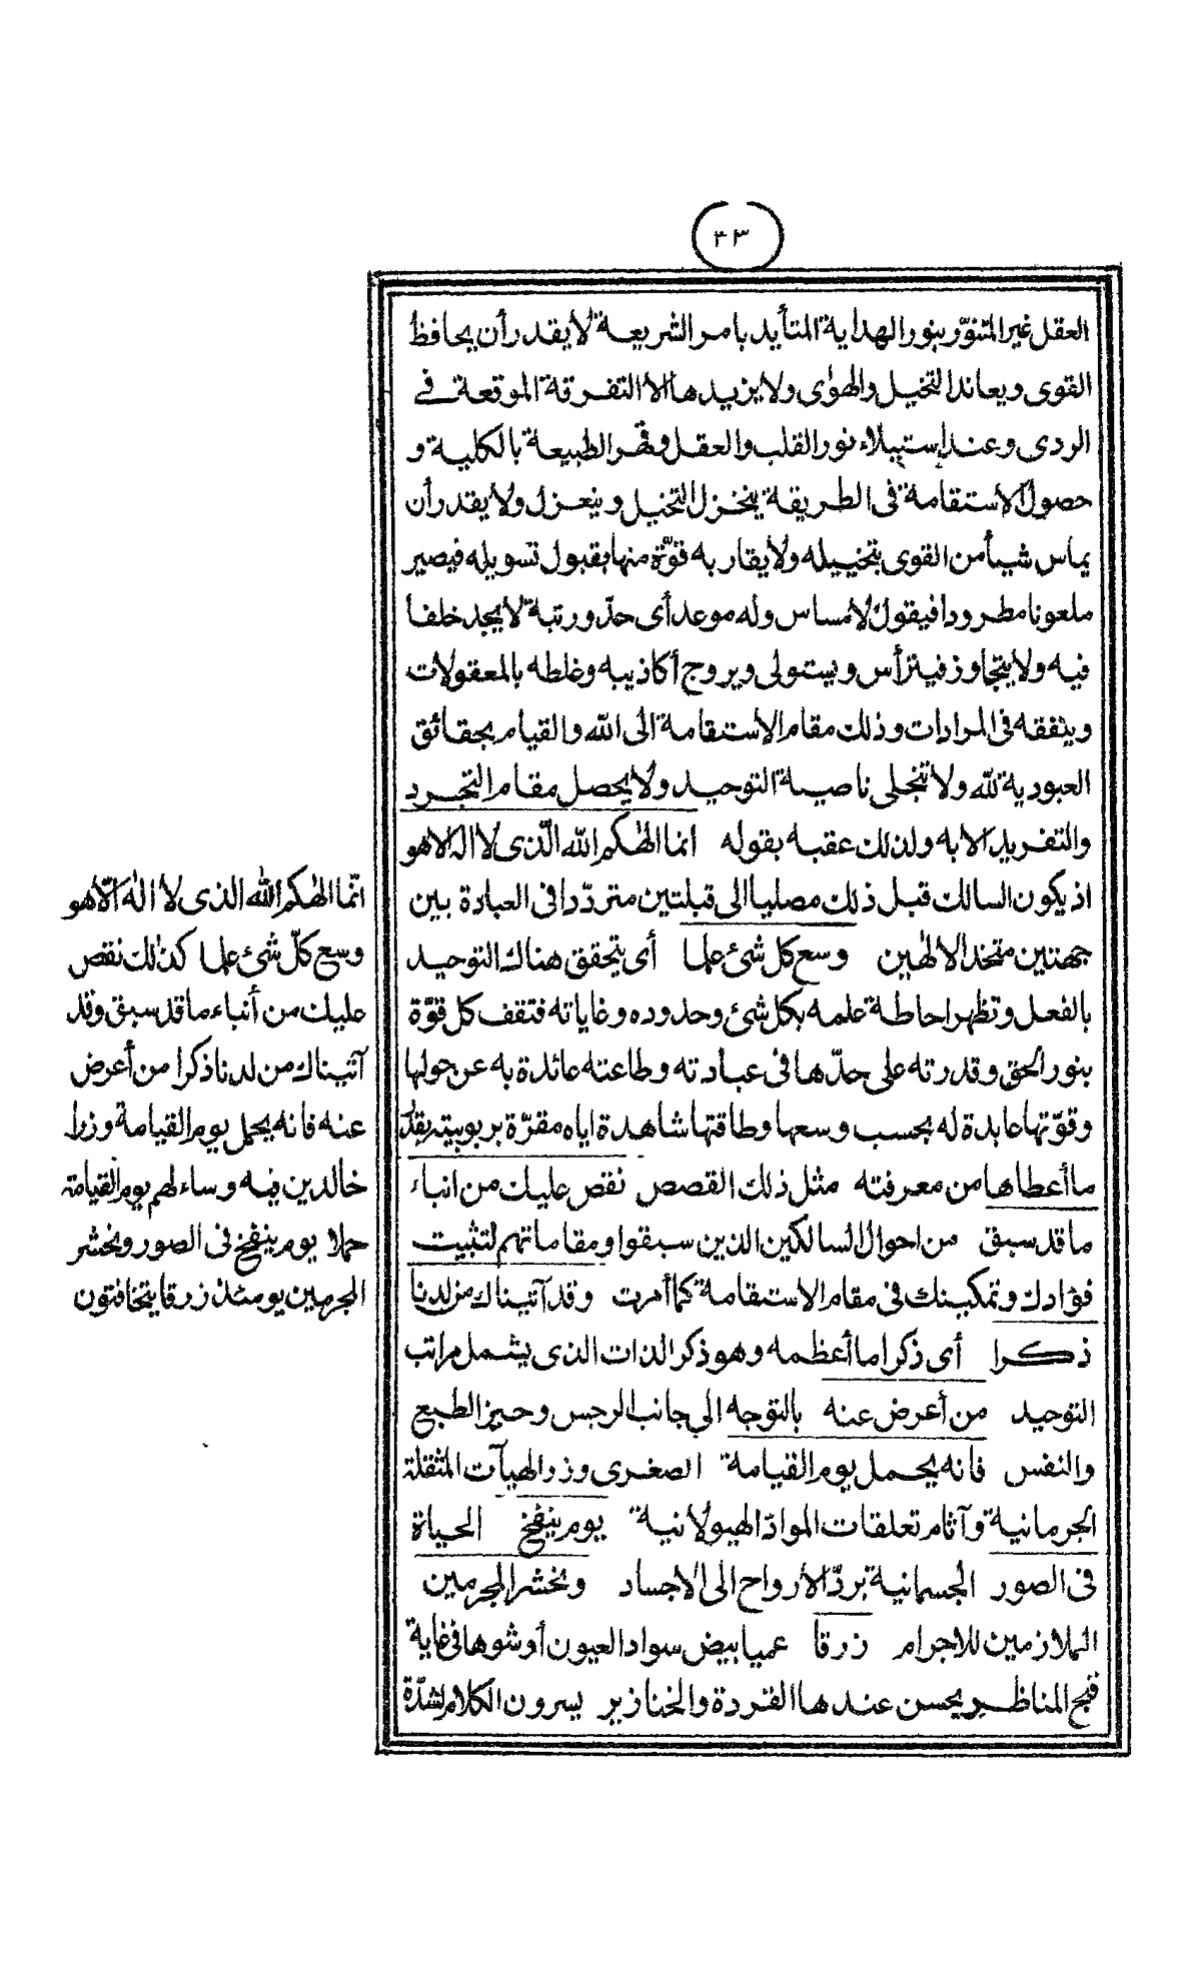 ٣٣
العقل غير المتنوّر بنور الهداية المتأيد بامر الشريعة لا يقدر أن يحافظ
القوى ويعاند التخيل والهوٰى ولا يزيدها الا التفرقة الموقعة فى
الردى وعند إستيلاء نور القلب والعقل وقهر الطبيعة بالكلية و
حصول الاستقامة فى الطريقة ينخزل التخيل وينعزل ولا يقدر أن
يماس شيأ من القوى بتخييله ولا يقاربه قوّة منها بقبول تسويله فيصير
ملعونا مطرودا فيقول لا مساس وله موعد أى حدّ ورتبة لا يجد خلفا
فيه ولا يتجاوز فيترأس ويستولى ويروج أكاذيبه وغلطه بالمعقولات
وينفقه فى المرادات وذلك مقام الاستقامة الى الله والقيام بحقائق
العبودية لله ولا تنجلى ناصية التوحيد ولا يحصل مقام التجرد
والتفريد الا به ولذلك عقبه بقوله انما الهٰكم الله الّذى لا اله الا هو
اذ يكون السالك قبل ذلك مصليا الى قبلتين متردّدا فى العبادة بين
جهتين متخذا لالٰهين وسع كل شئ علما أى يتحقق هناك التوحيد
بالفعل وتظهر احاطة علمه بكل شئ وحدوده وغاياته فتقف كل قوّة
بنور الحق وقدرته على حدّها فى عبادته وطاعته عائدة به عن حولها
وقوّتها عابدة له بحسب وسعها وطاقتها شاهدة اياه مقرّة بربوبيته بقدر
ما أعطاها من معرفته مثل ذلك القصص نقص عليك من انباء
ما قد سبق من احوال السالكين الذين سبقوا ومقاماتهم لتثبيت
فؤادك وتمكينك فى مقام الاستقامة كما أمرت وقد آتيناك من لدنا
ذكرا أى ذكرا ما أعظمه وهو ذكر الذات الذى يشمل مراتب
التوحيد من أعرض عنه بالتوجه الى جانب الرجس وحيز الطبع
والنفس فانه يحمل يوم القيامة الصغرى وزر الهيآت المثقلة
الجرمانية وآثام تعلقات الموادّ الهيولانية يوم ينفخ الحياة
فى الصور الجسمانية بردّ الأرواح الى الاجساد ونحشر المجرمين
الملازمين للاجرام زرقا عميا بيض سواد العيون أو شوها فى غاية
قبح المناظر يحسن عندها القردة والخنازير يسرون الكلام لشدّة
انما الهٰكم الله الذى لا اله الا هو
وسع كلّ شئ علما كذٰلك نقص
عليك من أنباء ما قد سبق وقد
آتيناك من لدنا ذكرا من أعرض
عنه فانه يحمل يوم القيامة وزرا
خالدين فيه وساء لهم يوم القيامة
حملا يوم ينفخ فى الصور ونحشر
المجرمين يومئذ زرقا يتخافتون